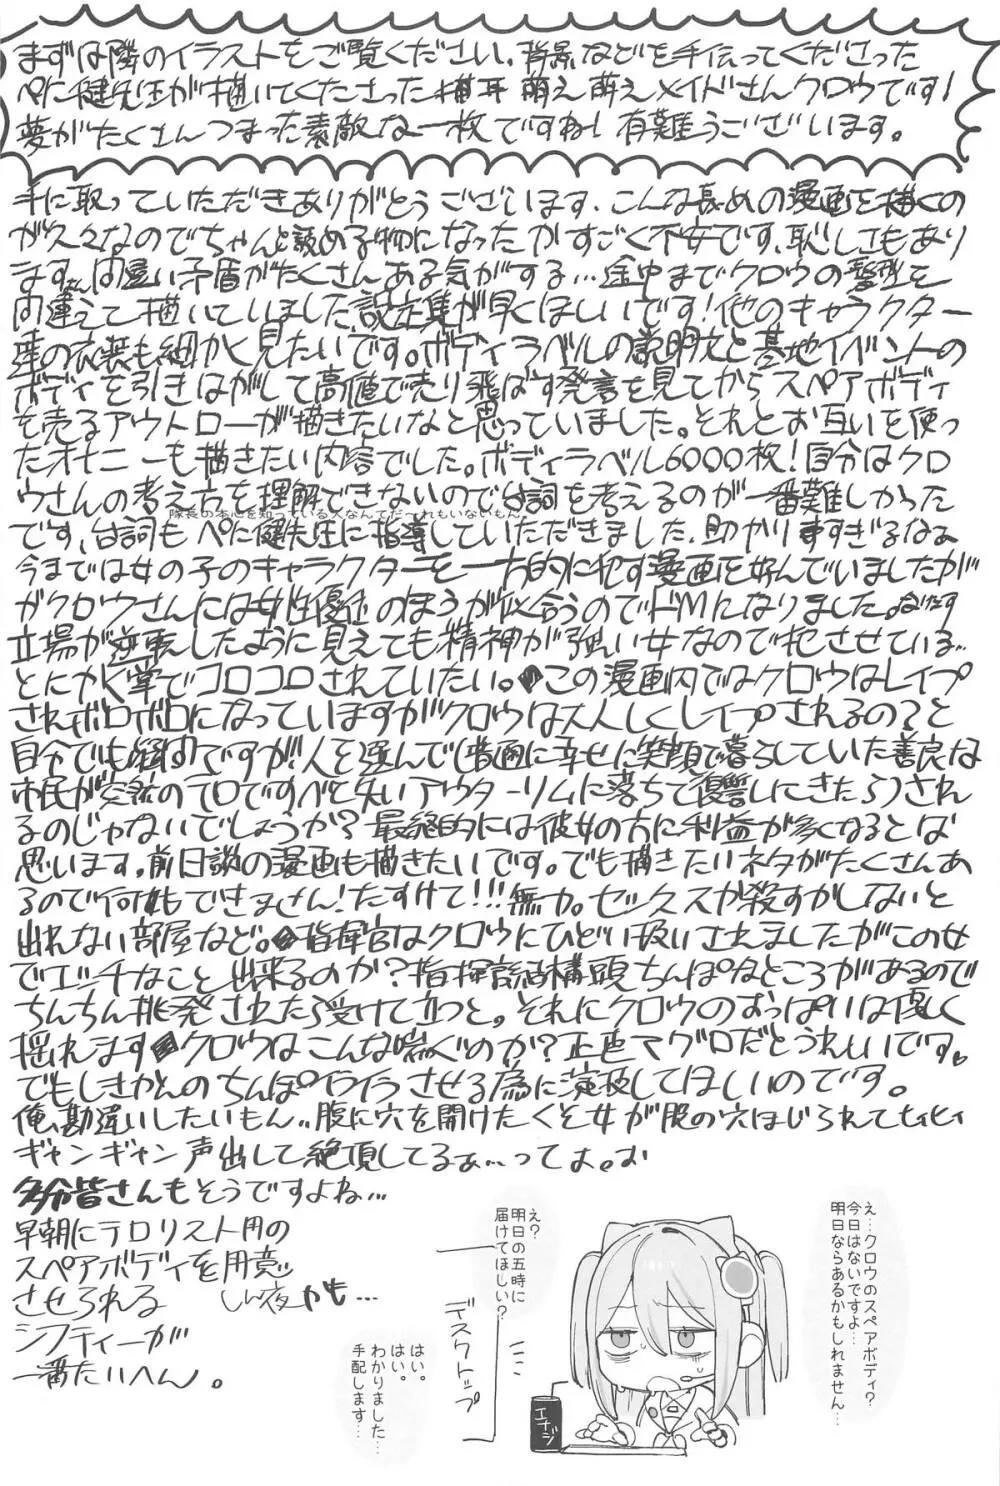 まずは隣のイラストをご覧ください。背景などを手伝ってくださった
ぺに健先生が描いてくださった猫耳萌え萌えメイドさんクロウです！
夢がたくさんつまった素敵な一枚ですね！有難うございます。
手に取っていただきありがとうございます、こんな長めの漫画を描くの
が久々なのでちゃんと読める物になったかすごく不安です、恥しくもあり
ます。間違い矛盾がたくさんある気がする…途中までクロウの髪型を
間違えて描いていました設定集が早くほしいです！他のキャラクター
達の衣装も細かく見たいです。ボディラベルの説明文と基地イベントの
ボディを引きはがして高値で売り飛ばす発言を見てからスペアボディ
を売るアウトローが描きたいなと思っていました。それとお互いを使っ
たオナニーも描きたい内容でした。ボディラベル6000枚！自分はクロ
ウさんの考え方を理解できないので台詞を考えるのが一番難しかった
隊長の本心を知っている人なんてだ〜れもいないもん。
です、台詞もぺに健先生に指導していただきました、助かりますすぎるなぁ
今までは女の子のキャラクターを一方的に犯す漫画を好んでいましたが
がクロウさんには女性優位のほうが似合うのでドMになりました。
立場が逆転したように見えても精神が強い女なので犯させている…
とにかく掌でコロコロされていたい。この漫画内ではクロウはレイプ
されボロボロになっていますがクロウは大人しくレイプされるの？と
自分でも疑問ですが！人を選んで(普通に幸せに笑顔で暮らしていた善良な
市民が突然のテロですべて失いアウターリムに落ちて復讐しにきたら)され
るのじゃないでしょうか？最終的には彼女の方に利益が多くなるとは
思います。前日談の漫画も描きたいです。でも描きたいネタがたくさんあ
るので何もできません！たすけて！！！無力。セックスか殺すかしないと
出れない部屋など。指揮官はクロウにひどい扱いされましたがこの女
でエッチなこと出来るのか？指揮官結構頭ちんぽなところがあるので
ちんちん挑発されたら受けて立つと。それにクロウのおっぱいは優しく
揺れます クロウはこんな喘ぐのか？正直マグロだとうれしいです。
でもしきかんのちんぽイライラさせる為に演技してほしいのです。
俺、勘違いしたいもん..腹に穴を開けたくそ女が股の穴ほじられてヒィヒィ
ギャンギャン声出して絶頂してるぁ…ってよ。お
多分皆さんもそうですよね…
早朝にテロリスト用の
スペアボディを用意
させられる しん夜かも…
シフティーが
一番たいへん。
え…クロウのスペアボディ？
今日はないですよ…
明日ならあるかもしれません…
え？
明日の五時に
届けてほしい？
はい。
はい。
わかりました…
手配します…
デスクトップ
エナジ